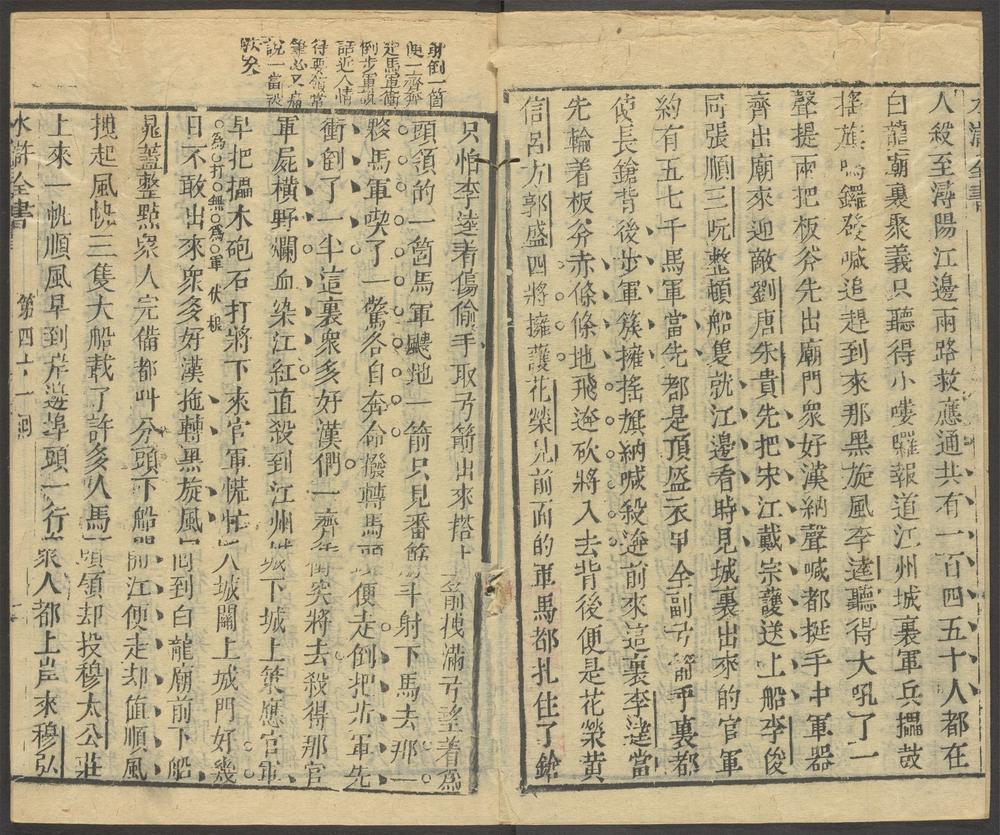 水滸全書
人殺至潯陽江邊兩路救應通共有一百四五十人都在
白龍廟裏聚義只聽得小嘍囉報道江州城裏軍兵擂鼓
搖旗鳴鑼發喊追趕到來那黑旋風李逵聽得大吼了一
聲提兩把板斧先出廟門衆好漢納聲喊都挺手中軍器
齊出廟來迎敵劉唐朱貴先把宋江戴宗護送上船李俊
同張順三阮整頓船隻就江邊看時見城裏出來的官軍
約有五七千馬軍當先都是頂盔衣甲全副弓箭手裏都
使長鎗背後步軍簇擁搖旗納喊殺迯前來這裏李逵當
先輪着板斧赤條條地飛迯砍將入去背後便是花榮黃
信呂方郭盛四將擁護花榮見前面的軍馬都扎住了鎗
射倒一箇
便一齊奔
走馬軍衝
倒步軍說
話近人情
得要領常
說一當被
只怕李逵着傷偷手取弓箭出來搭上箭拽滿弓望着爲
頭領的一箇馬軍颼地一箭只見番觔斗射下馬去那一
夥馬軍喫了一驚各自奔命撥轉馬頭便走倒把步軍先
衝倒了一半這裏衆多好漢們一齊衝突將去殺得那官
軍屍橫野爛血染江紅直殺到江州城下城上策應官軍
早把擂木砲石打將下來官軍慌忙入城關上城門好幾
爲打無爲軍伏線
日不敢出來衆多好漢拖轉黑旋風回到白龍廟前下船
晁蓋整點衆人完備都叫分頭下船開江便走却值順風
拽起風帆三隻大船載了許多人馬頭領却投穆太公莊
上來一帆順風早到岸邊埠頭一行衆人都上岸來穆弘
水滸全書
第四十一囘